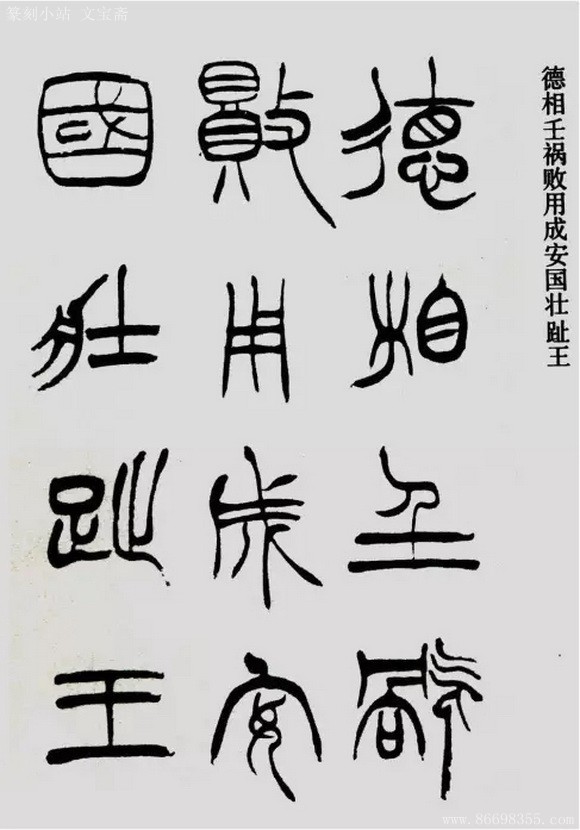 篆刻小站 文宝斋
德相壬祸败用成安国壮趾王
德相壬祸
败用成安
國壯趾王
www.86698355.com